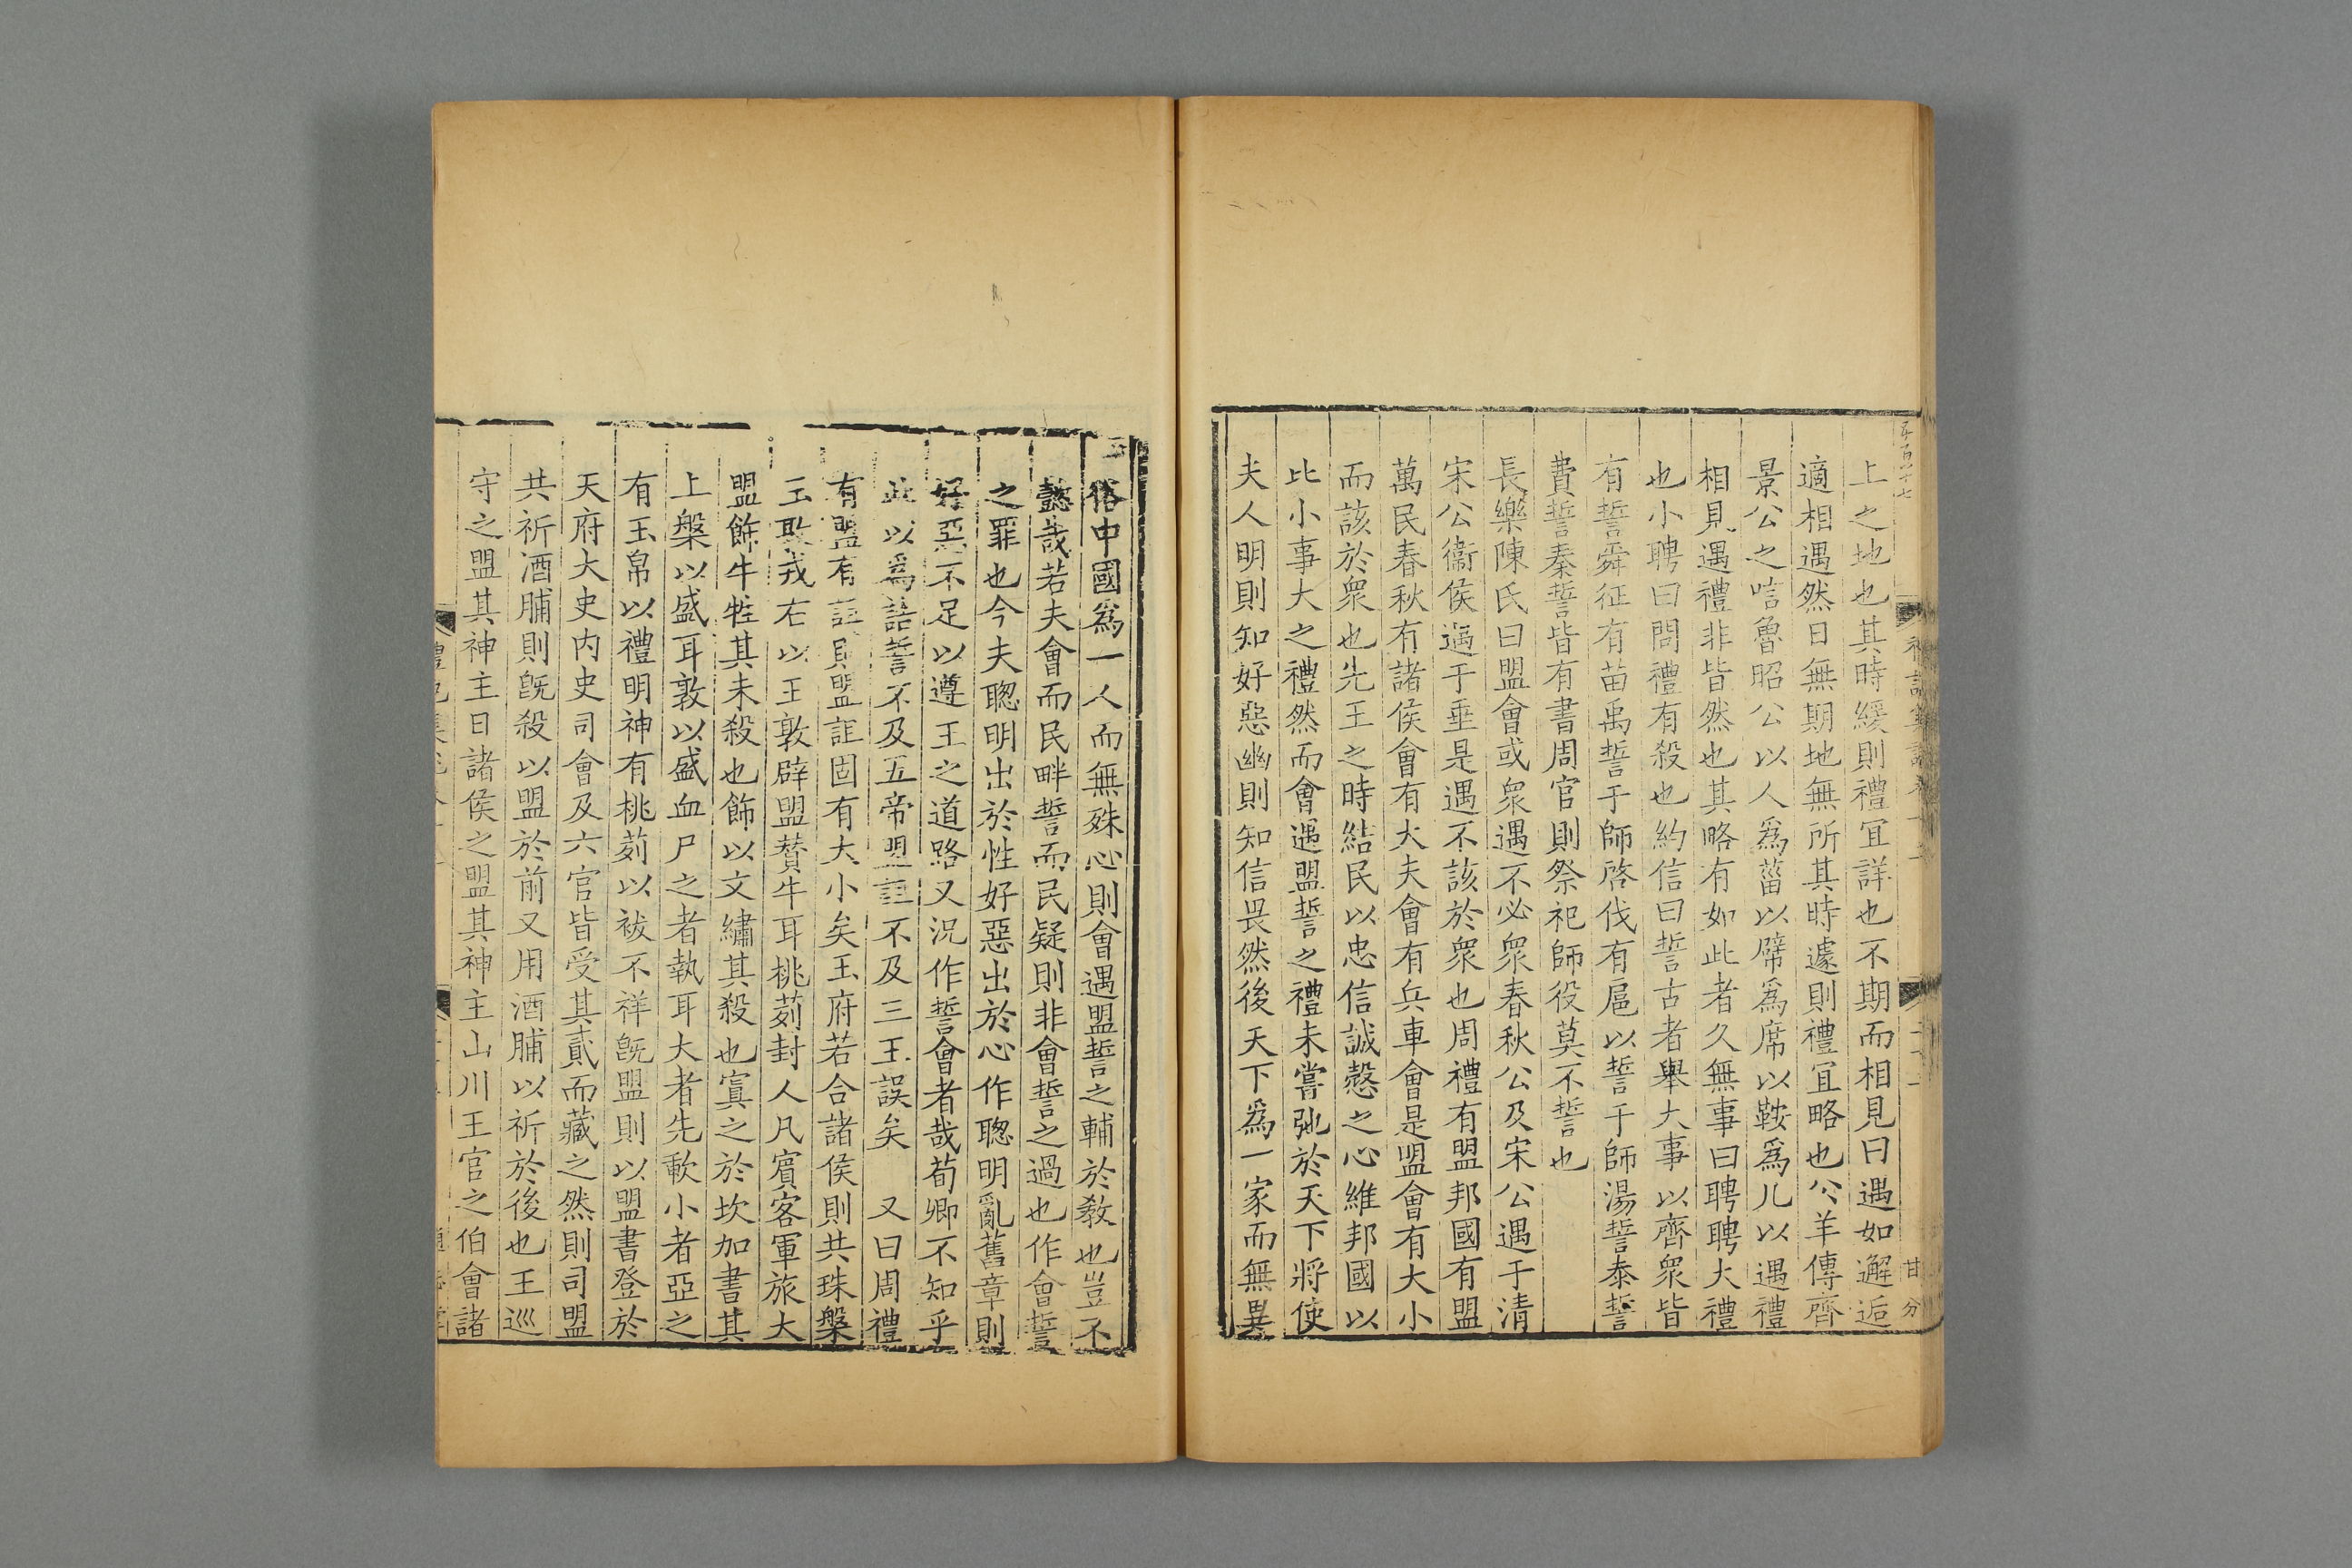 上之地也其時緩則禮宜詳也不期而相見曰遇如邂逅
適相遇然日無期地無所其時遽則禮宜略也公羊傳齊
景公之唁魯昭公以人爲菑以幦爲席以鞍爲几以遇禮
相見遇禮非皆然也其略有如此者久無事曰聘聘大禮
也小聘曰問禮有殺也約信曰誓古者舉大事以齊衆皆
有誓舜征有苗禹誓于師啓伐有扈以誓于師湯誓泰誓
費誓秦誓皆有書周官則祭祀師役莫不誓也
長樂陳氏曰盟會或衆遇不必衆春秋公及宋公遇于清
宋公衞侯遇于垂是遇不該於衆也周禮有盟邦國有盟
萬民春秋有諸侯會有大夫會有兵車會是盟會有大小
而該於衆也先王之時結民以忠信誠慤之心維邦國以
比小事大之禮然而會遇盟誓之禮未嘗弛於天下將使
夫人明則知好惡幽則知信畏然後天下爲一家而無異
俗中國爲一人而無殊心則會遇盟誓之輔於教也豈不
懿哉若夫會而民畔誓而民疑則非會誓之過也作會誓
之罪也今夫聦明出於性好惡出於心作聦明亂舊章則
好惡不足以遵王之道路又況作誓會者哉荀卿不知乎
此以爲誥誓不及五帝盟詛不及三王誤矣　又曰周禮
有盟有詛則盟詛固有大小矣玉府若合諸侯則共珠槃
玉敦戎右以玉敦辟盟贊牛耳桃茢封人凡賓客軍旅大
盟飾牛牲其未殺也飾以文繡其殺也寘之於坎加書其
上槃以盛耳敦以盛血尸之者執耳大者先歃小者亞之
有玉帛以禮明神有桃茢以祓不祥旣盟則以盟書登於
天府大史内史司會及六官皆受其貳而藏之然則司盟
共祈酒脯則旣殺以盟於前又用酒脯以祈於後也王巡
守之盟其神主日諸侯之盟其神主山川王官之伯會諸